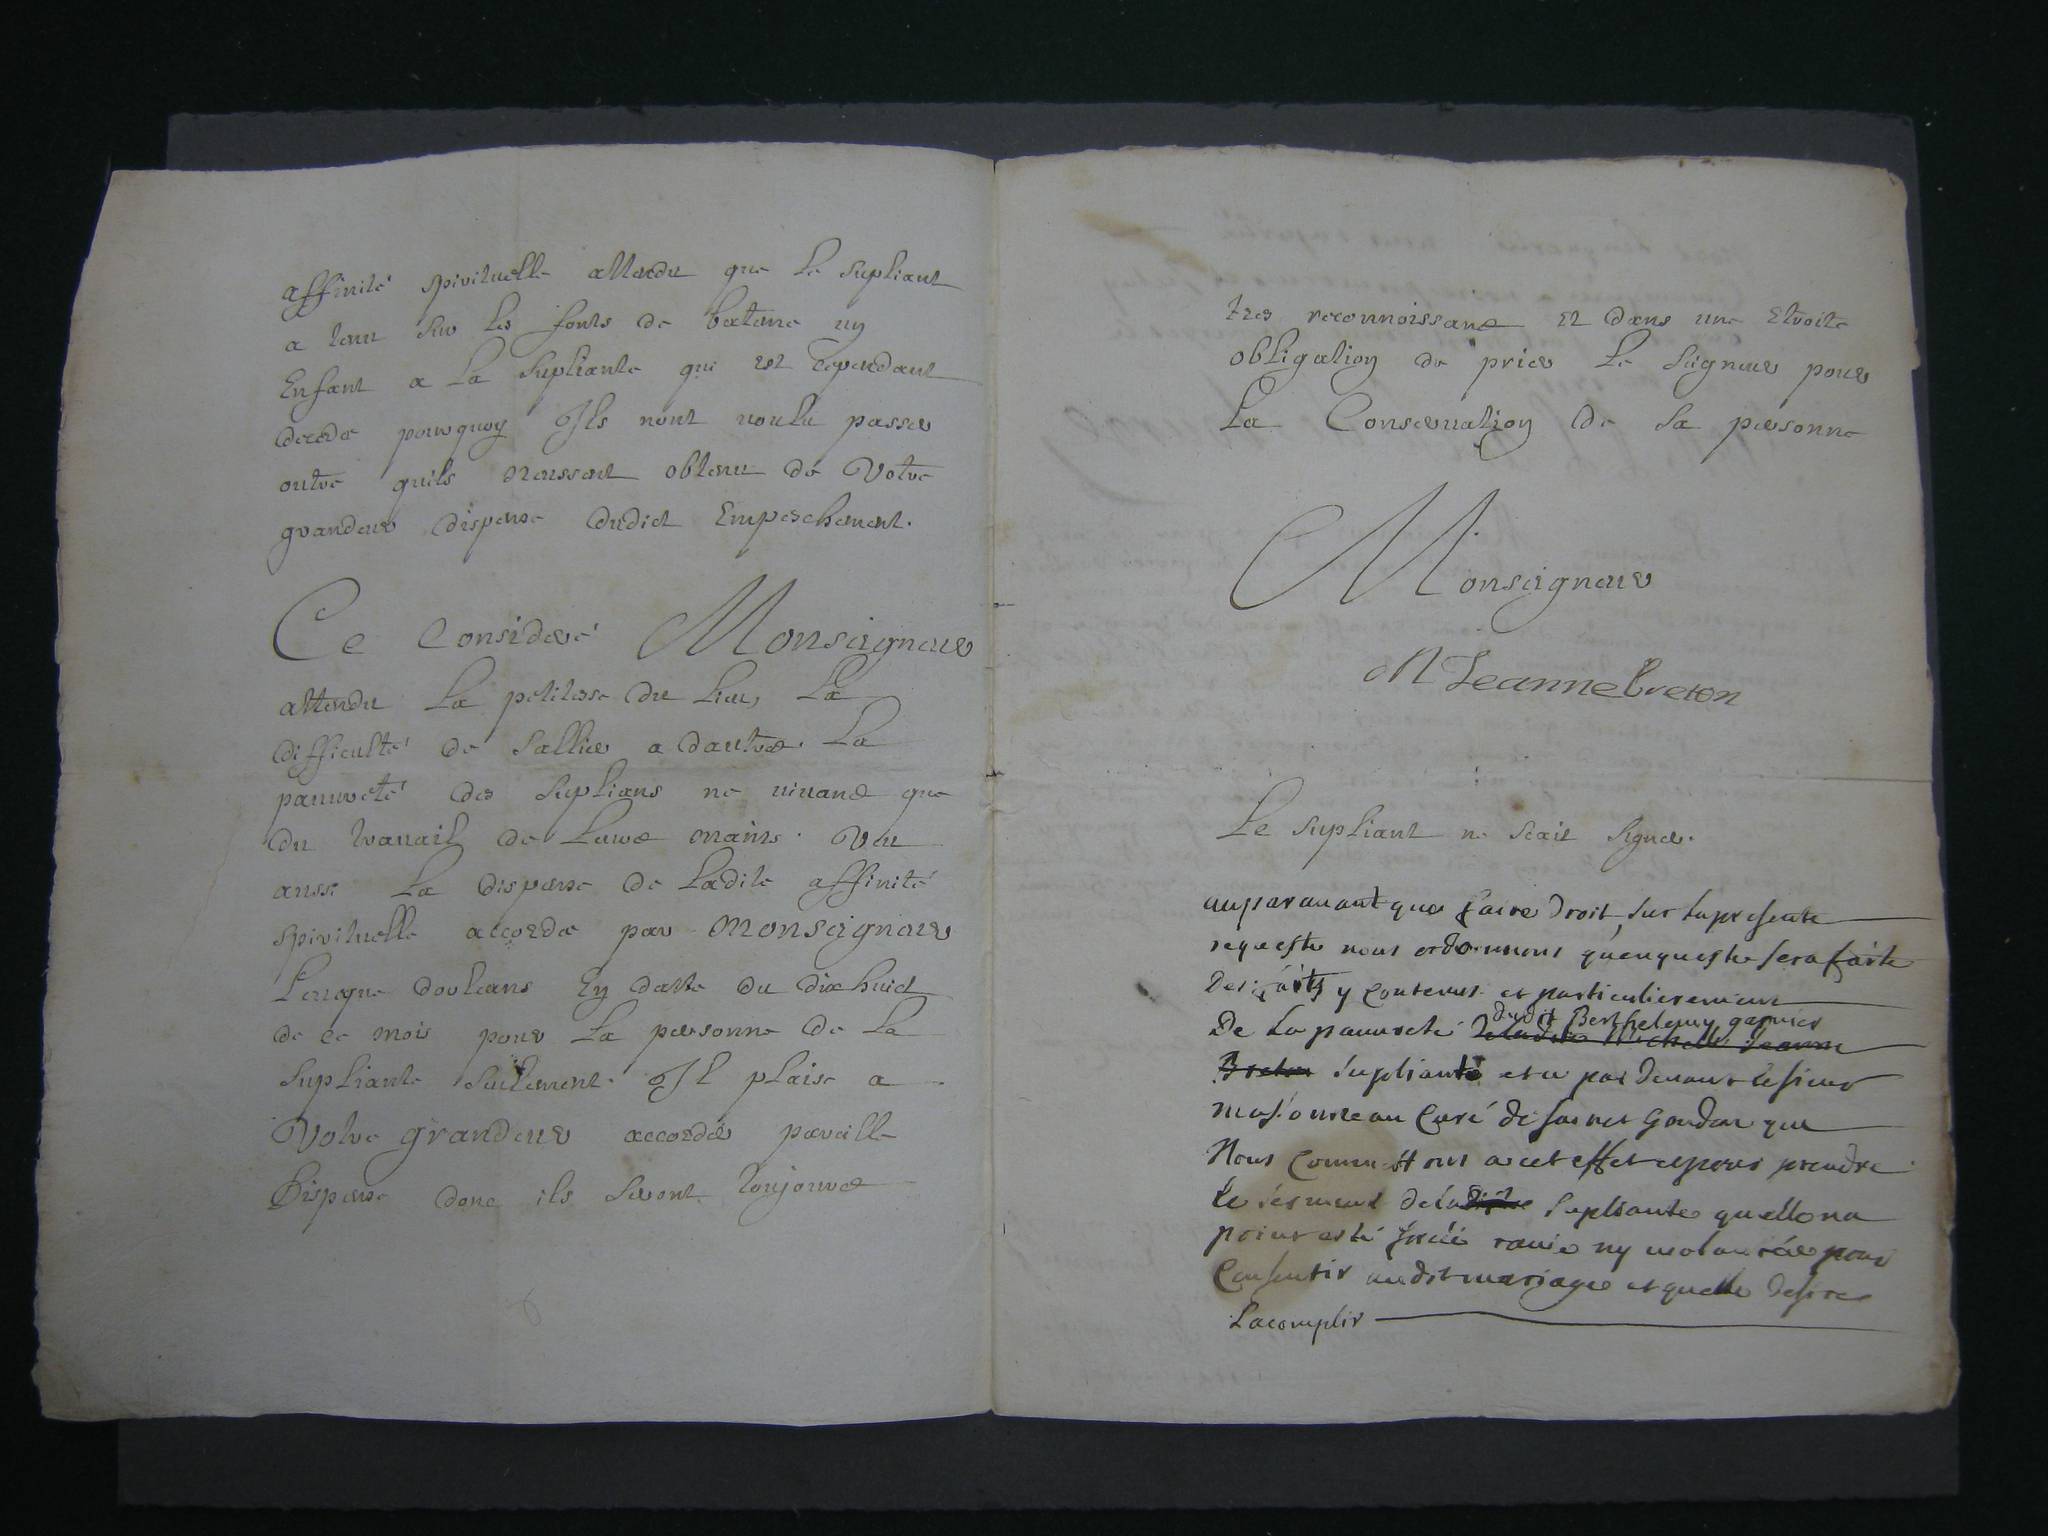 affinité spirituelle attendu que le supliant
a tenu sur les fonts de bateme un
Enfant a la supliante qui est cependant
decedé pourquoy Ils nont voulu passer
outre quils neussent obtenu de Votre
grandeur dispense dudict Empeschement.
Ce Consideré Monseigneur
attendu La petitesse du lieu, La
difficulté de sallier a dautres La
pauvreté des suplians ne vivans que
du travail de Leurs mains. Veu
aussi La dispense de Ladite affinité
spirituelle accordée par Monseigneur
L'eveque dorleans En datte du dix huict
de ce mois pour La personne de La
supliante seulement. Il plaise a
Votre grandeur accorder pareille
Dispense donc ils seront toujours
tres reconnoissans Et dans une Etroite
obligation de prier Le seigneur pour
La Conservation de sa personne
Monseigneur
M Jeanne breton
Le supliant ne scait signer.
auparavant que faire droit sur la presente
requeste nous ordonnons qu'enqueste sera faite
des faits y contenus et particulierement
dudit Berthelemy garnier
De la pauvreté de ladite Michelle Jeanne
Breton supliante et ce par devant le sieur
curé de sainct Gondon que
Nous commettons a cet effet et pour prendre
le serment de la dite supliante quelle na
point esté forcée ravie ny violentée pour
consentir audit mariage et quelle desire
Lacomplir